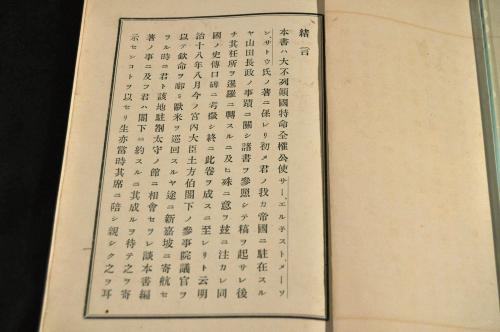 緒言
本書ハ大不列顛國特命全權公使サー、エルチスト、メーソ
ン、サトウ氏ノ著ニ係レリ初メ君ノ我カ帝國ニ駐在スル
ヤ山田長政ノ事蹟ニ關シ諸書ヲ參照シテ稿ヲ起サレ後
チ其任所ヲ暹羅ニ轉スルニ及ヒ殊ニ意ヲ玆ニ注カレ同
國ノ史傳口碑ニ考徵シ終ニ此卷ヲ成スニ至レリト云明
治十八年八月今ノ宮內大臣土方伯閣下ノ參事院議官ヲ
以テ欽命ヲ啣ミ歐米ヲ巡回スルヤ途ニ新嘉坡ニ寄航セ
ラル時ニ君ト該地駐劄太守ノ館ニ相會セラレ談本書編
著ノ事ニ及フ君ハ閣下ニ約スルニ其成ルヲ待テ之ヲ寄
示センコトヲ以セリ生亦當時其席ニ陪シ親シク之ヲ耳